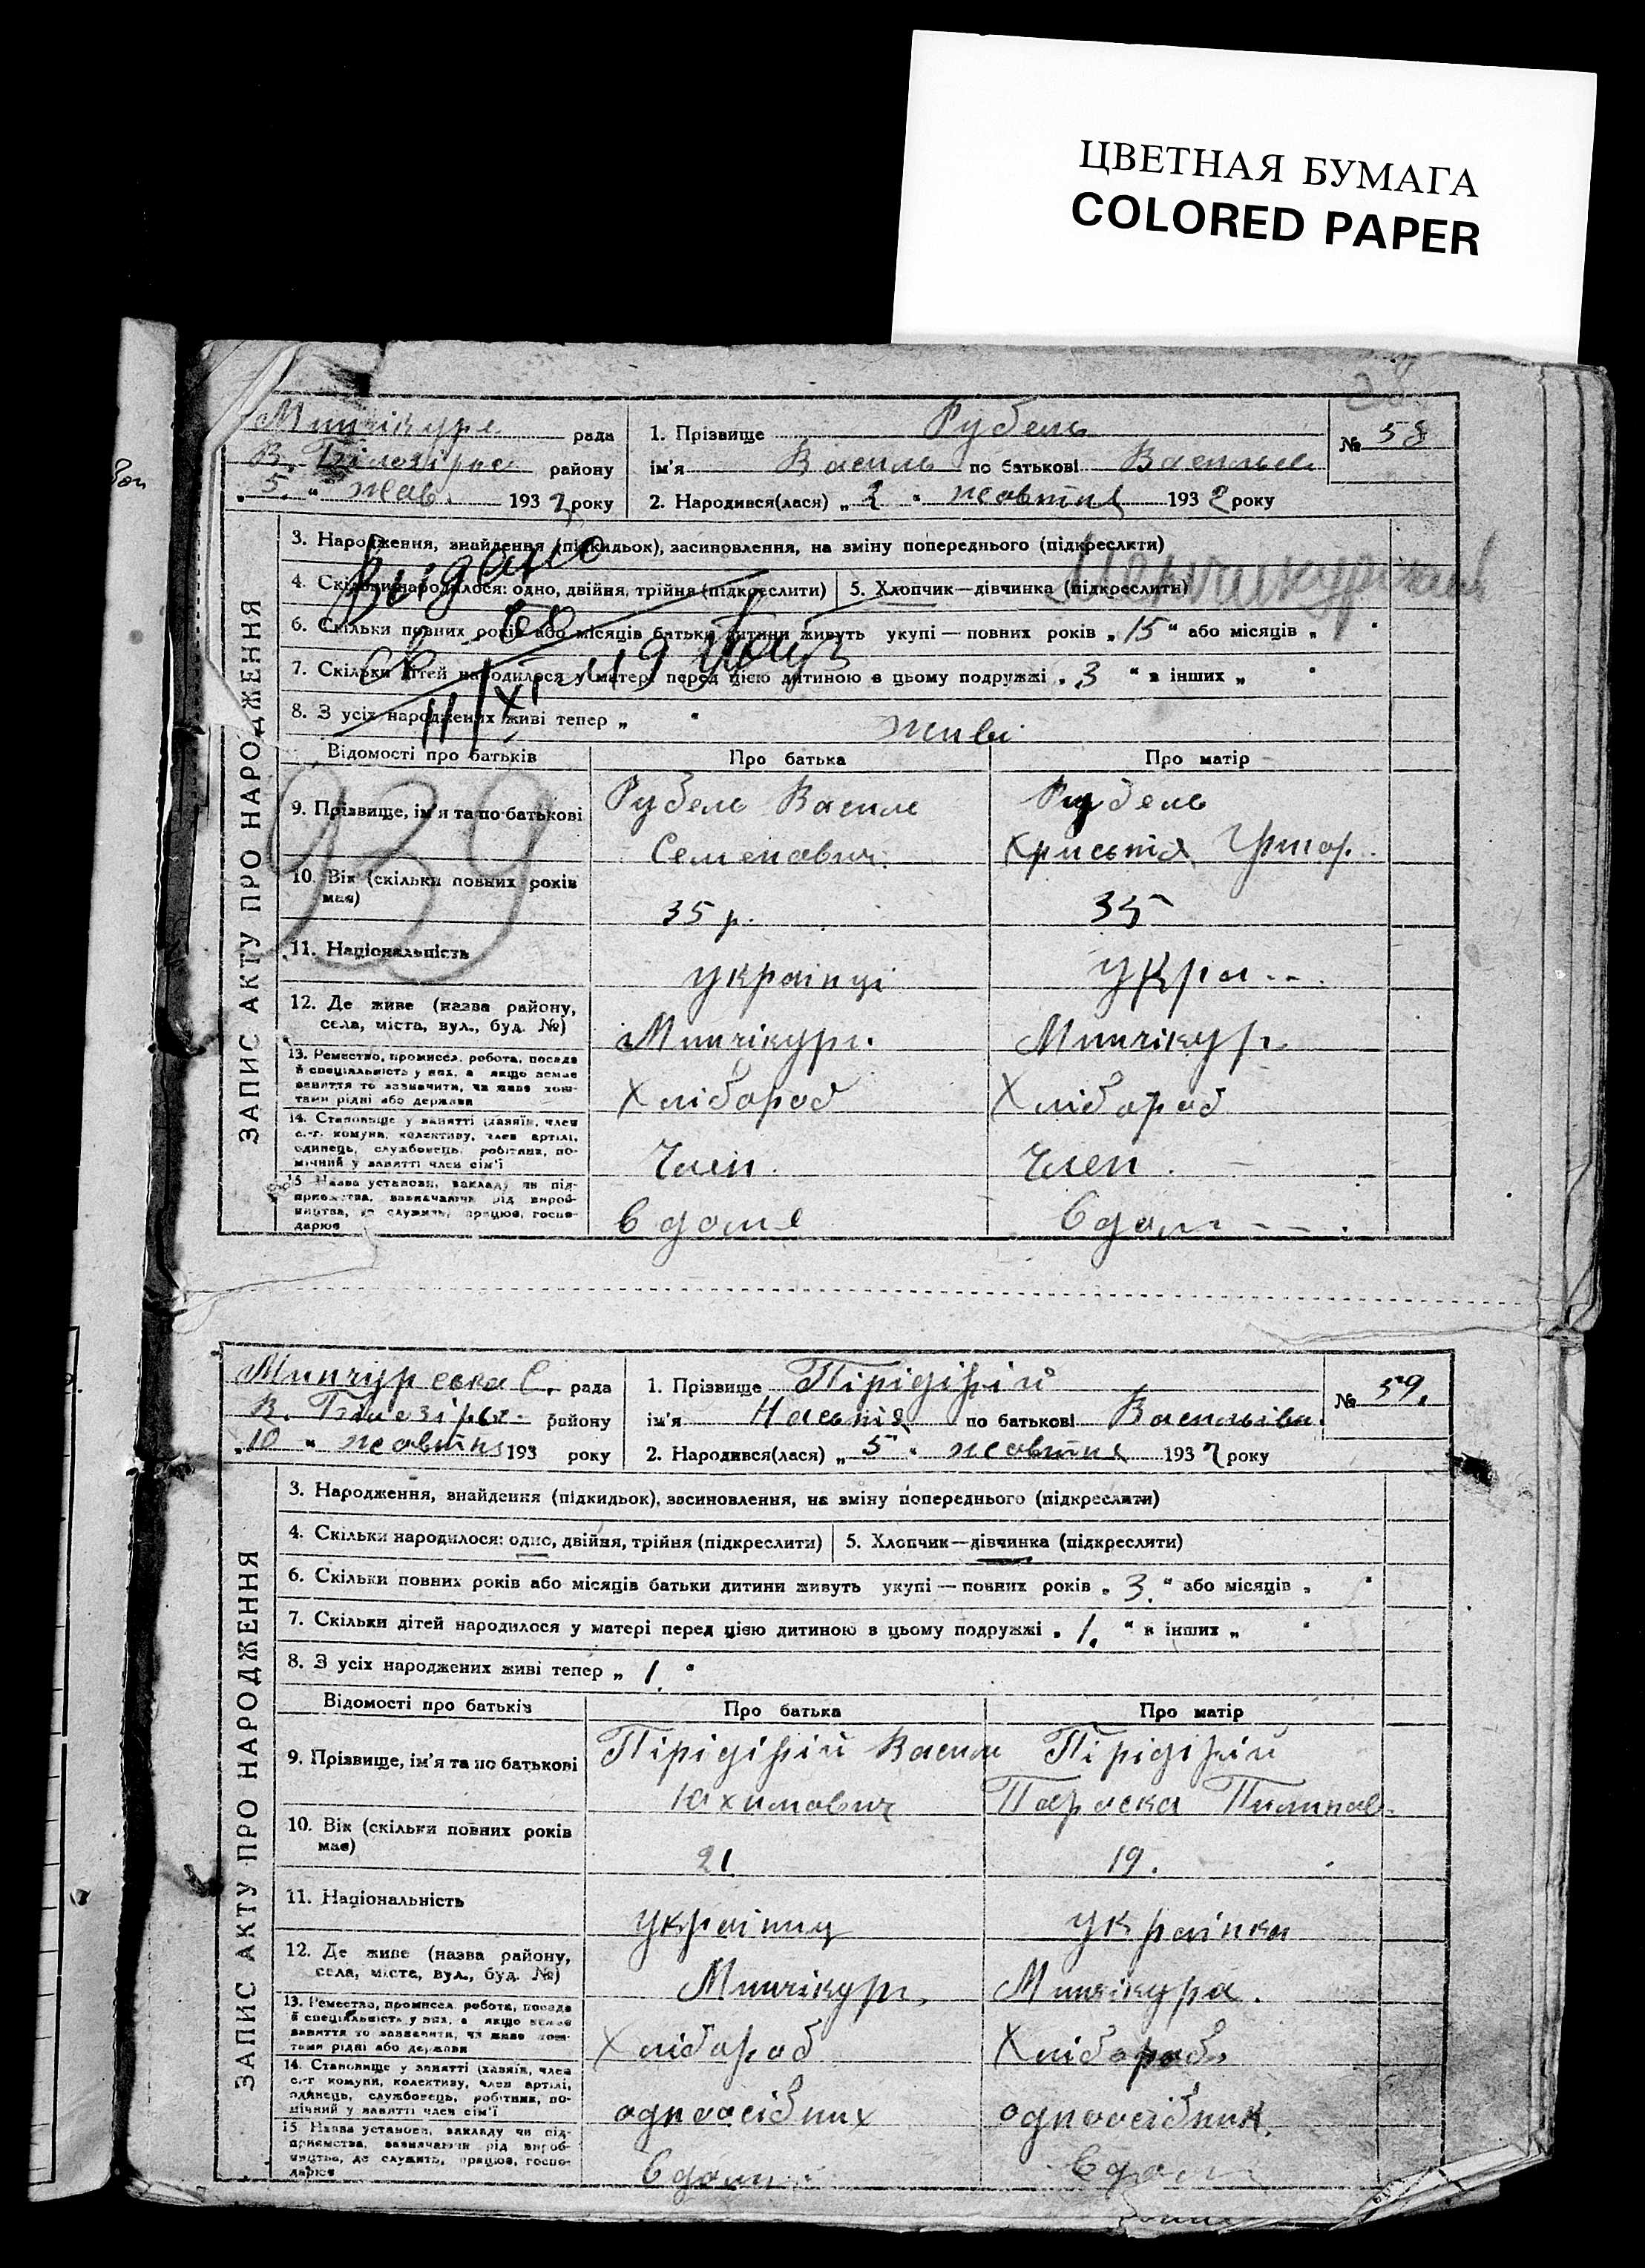 ЦВЕТНАЯ БУМАГА
COLORED PAPER
ЗАПИС АКТУ ПРО НАРОДЖЕННЯ
рада
району
„5.“ жов. 1932 року
1. Прізвище Рубель
№ 58
ім'я Василь по батькові
2. Народився(лася) „2“ жовтня 1932 року
3. Народження, знайдення (підкидьок), засиновлення, на зміну попереднього (підкреслити)
4. Скільки народилося: одно, двійня, трійня (підкреслити) 5. Хлопчик—дівчинка (підкреслити)
6. Скільки повних років або місяців батьки дитини живуть укупі — повних років „15“ або місяців „ “
7. Скільки дітей народилося у матері перед цією дитиною в цьому подружжі „3“ в інших „ “
8. З усіх народжених живі тепер „ “ живі
Видано
11/XI
939
Відомості про батьків Про батька Про матір
9. Прізвище, ім'я та по батькові Рубель Василь Рубель
Семенович Христія Григор.
10. Вік (скільки повних років має) 35 р. 35
11. Національність українці укра--
12. Де живе (назва району, села, міста, вул., буд. №) Минчікур. Минчікур
13. Ремество, промисел, робота, посада й спеціяльність у них, а якщо немає заняття то зазначити, чи живе коштами рідні або держави Хлібороб Хлібороб
14. Становище у занятті (хазяїн, член с.-г. комуни, колективу, член артілі, одинець, службовець, робітник, помічний у занятті член сім'ї Член. Член.
15. Назва установи, закладу чи підприємства, зазначаючи рід виробництва, де служить, працює, господарює в доме в дом---.
ЗАПИС АКТУ ПРО НАРОДЖЕННЯ
рада
району
„10“ жовтня 193 року
1. Прізвище Пірідірій
№ 59.
ім'я Настія по батькові Васильівн.
2. Народився(лася) „5“ жовтня 1932 року
3. Народження, знайдення (підкидьок), засиновлення, на зміну попереднього (підкреслити)
4. Скільки народилося: одно, двійня, трійня (підкреслити) 5. Хлопчик—дівчинка (підкреслити)
6. Скільки повних років або місяців батьки дитини живуть укупі — повних років „3.“ або місяців „ “
7. Скільки дітей народилося у матері перед цією дитиною в цьому подружжі „1.“ в інших „ “
8. З усіх народжених живі тепер „1.“
Відомості про батьків Про батька Про матір
9. Прізвище, ім'я та по батькові Пірідірій Васил Пірідірій
Юхимович Параска Пилипов.
10. Вік (скільки повних років має) 21 19.
11. Національність українц українка
12. Де живе (назва району, села, міста, вул., буд. №) Минчікур. Минчікура.
13. Ремество, промисел, робота, посада й спеціяльність у них, а якщо немає заняття то зазначити, чи живе коштами рідні або держави Хлібороб Хлібороб
14. Становище у занятті (хазяїн, член с.-г. комуни, колективу, член артілі, одинець, службовець, робітник, помічний у занятті член сім'ї одноосібних одноосібник.
15. Назва установи, закладу чи підприємства, зазначаючи рід виробництва, де служить, працює, господарює в дом в дом